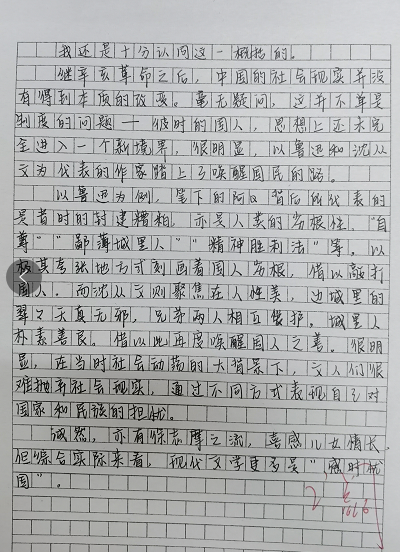 我还是十分认同这一概括的。
继辛亥革命之后,中国的社会现实并没
有得到本质的改变。毫无疑问,这并不单是
制度的问题——彼时的国人,思想上还未完
全进入一个新境界,很明显,以鲁迅和沈从
文为代表的作家踏上了唤醒国民的路。
以鲁迅为例,笔下的阿Q背后所代表的
是旧时的封建糟粕,亦是人类的劣根性,"自
尊""鄙薄城里人""精神胜利法"等,以
极其夸张地方式刻画着国人劣根,借以敲打
国人。而沈从文则聚焦在人性美,边城里的
翠翠天真无邪,兄弟两人相互爱护,城里人
朴素善良。借以此再度唤醒国人之善。很明
显,在当时社会动荡的大背景下,文人们很
难抛弃社会现实,通过不同方式表现自己对
国家和民族的担忧。
诚然,亦有徐志摩之流,喜感儿女情长,
但综合实际来看,现代文学更多是"感时忧
国"。